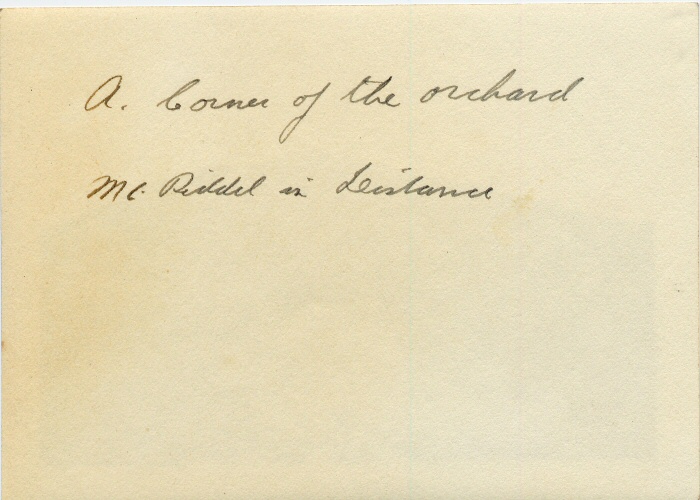 A. Corner of the orchard
Mc. Riddel in Distance